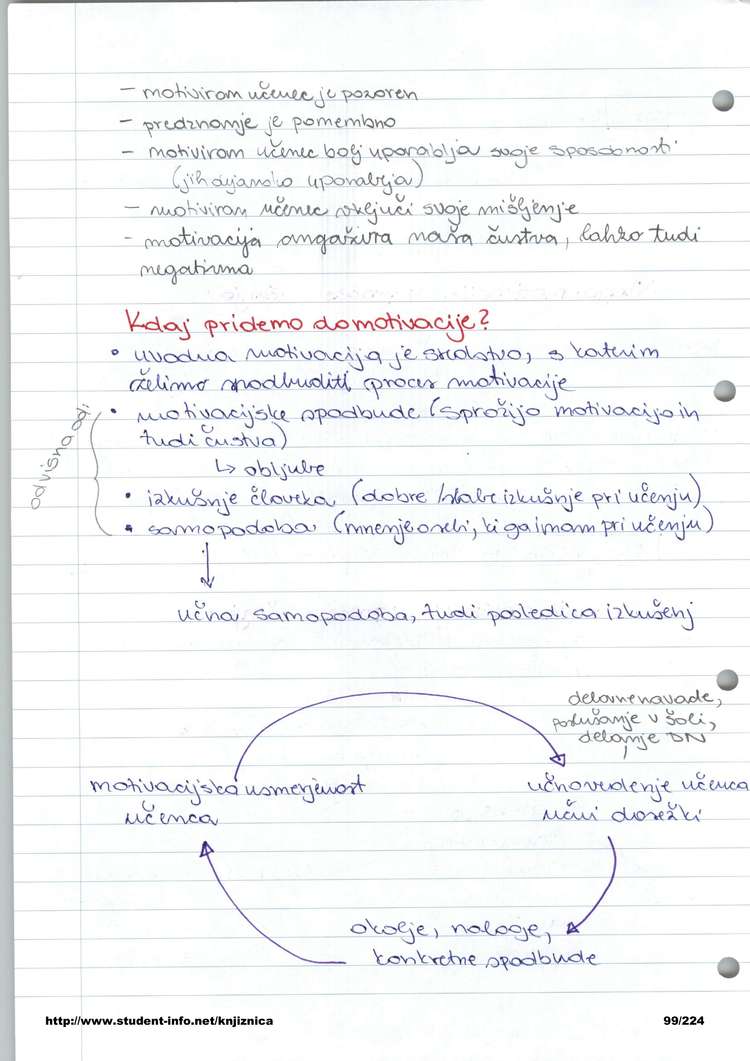 – motiviran učenec je pozoren
– predznanje je pomembno
– motiviran učenec bolj uporablja svoje sposobnosti
(jih dejansko uporablja)
– motiviran učenec vključi svoje mišljenje
– motivacija angažira naša čustva, lahko tudi
negativna
Kdaj pridemo do motivacije?
• uvodna motivacija je sredstvo, s katerim
želimo spodbuditi proces motivacije
• motivacijske spodbude (sprožijo motivacijo in
tudi čustva)
↳ obljube
odvisna od:
• izkušnje človeka (dobre/slabe izkušnje pri učenju)
• samopodoba (mnenje o sebi, ki ga imam pri učenju)
učna samopodoba, tudi posledica izkušenj
delovne navade,
poslušanje v šoli,
delanje DN
motivacijska usmerjenost
učenca
učno vedenje učenca
učni dosežki
okolje, naloge,
konkretne spodbude
http://www.student-info.net/knjiznica
99/224